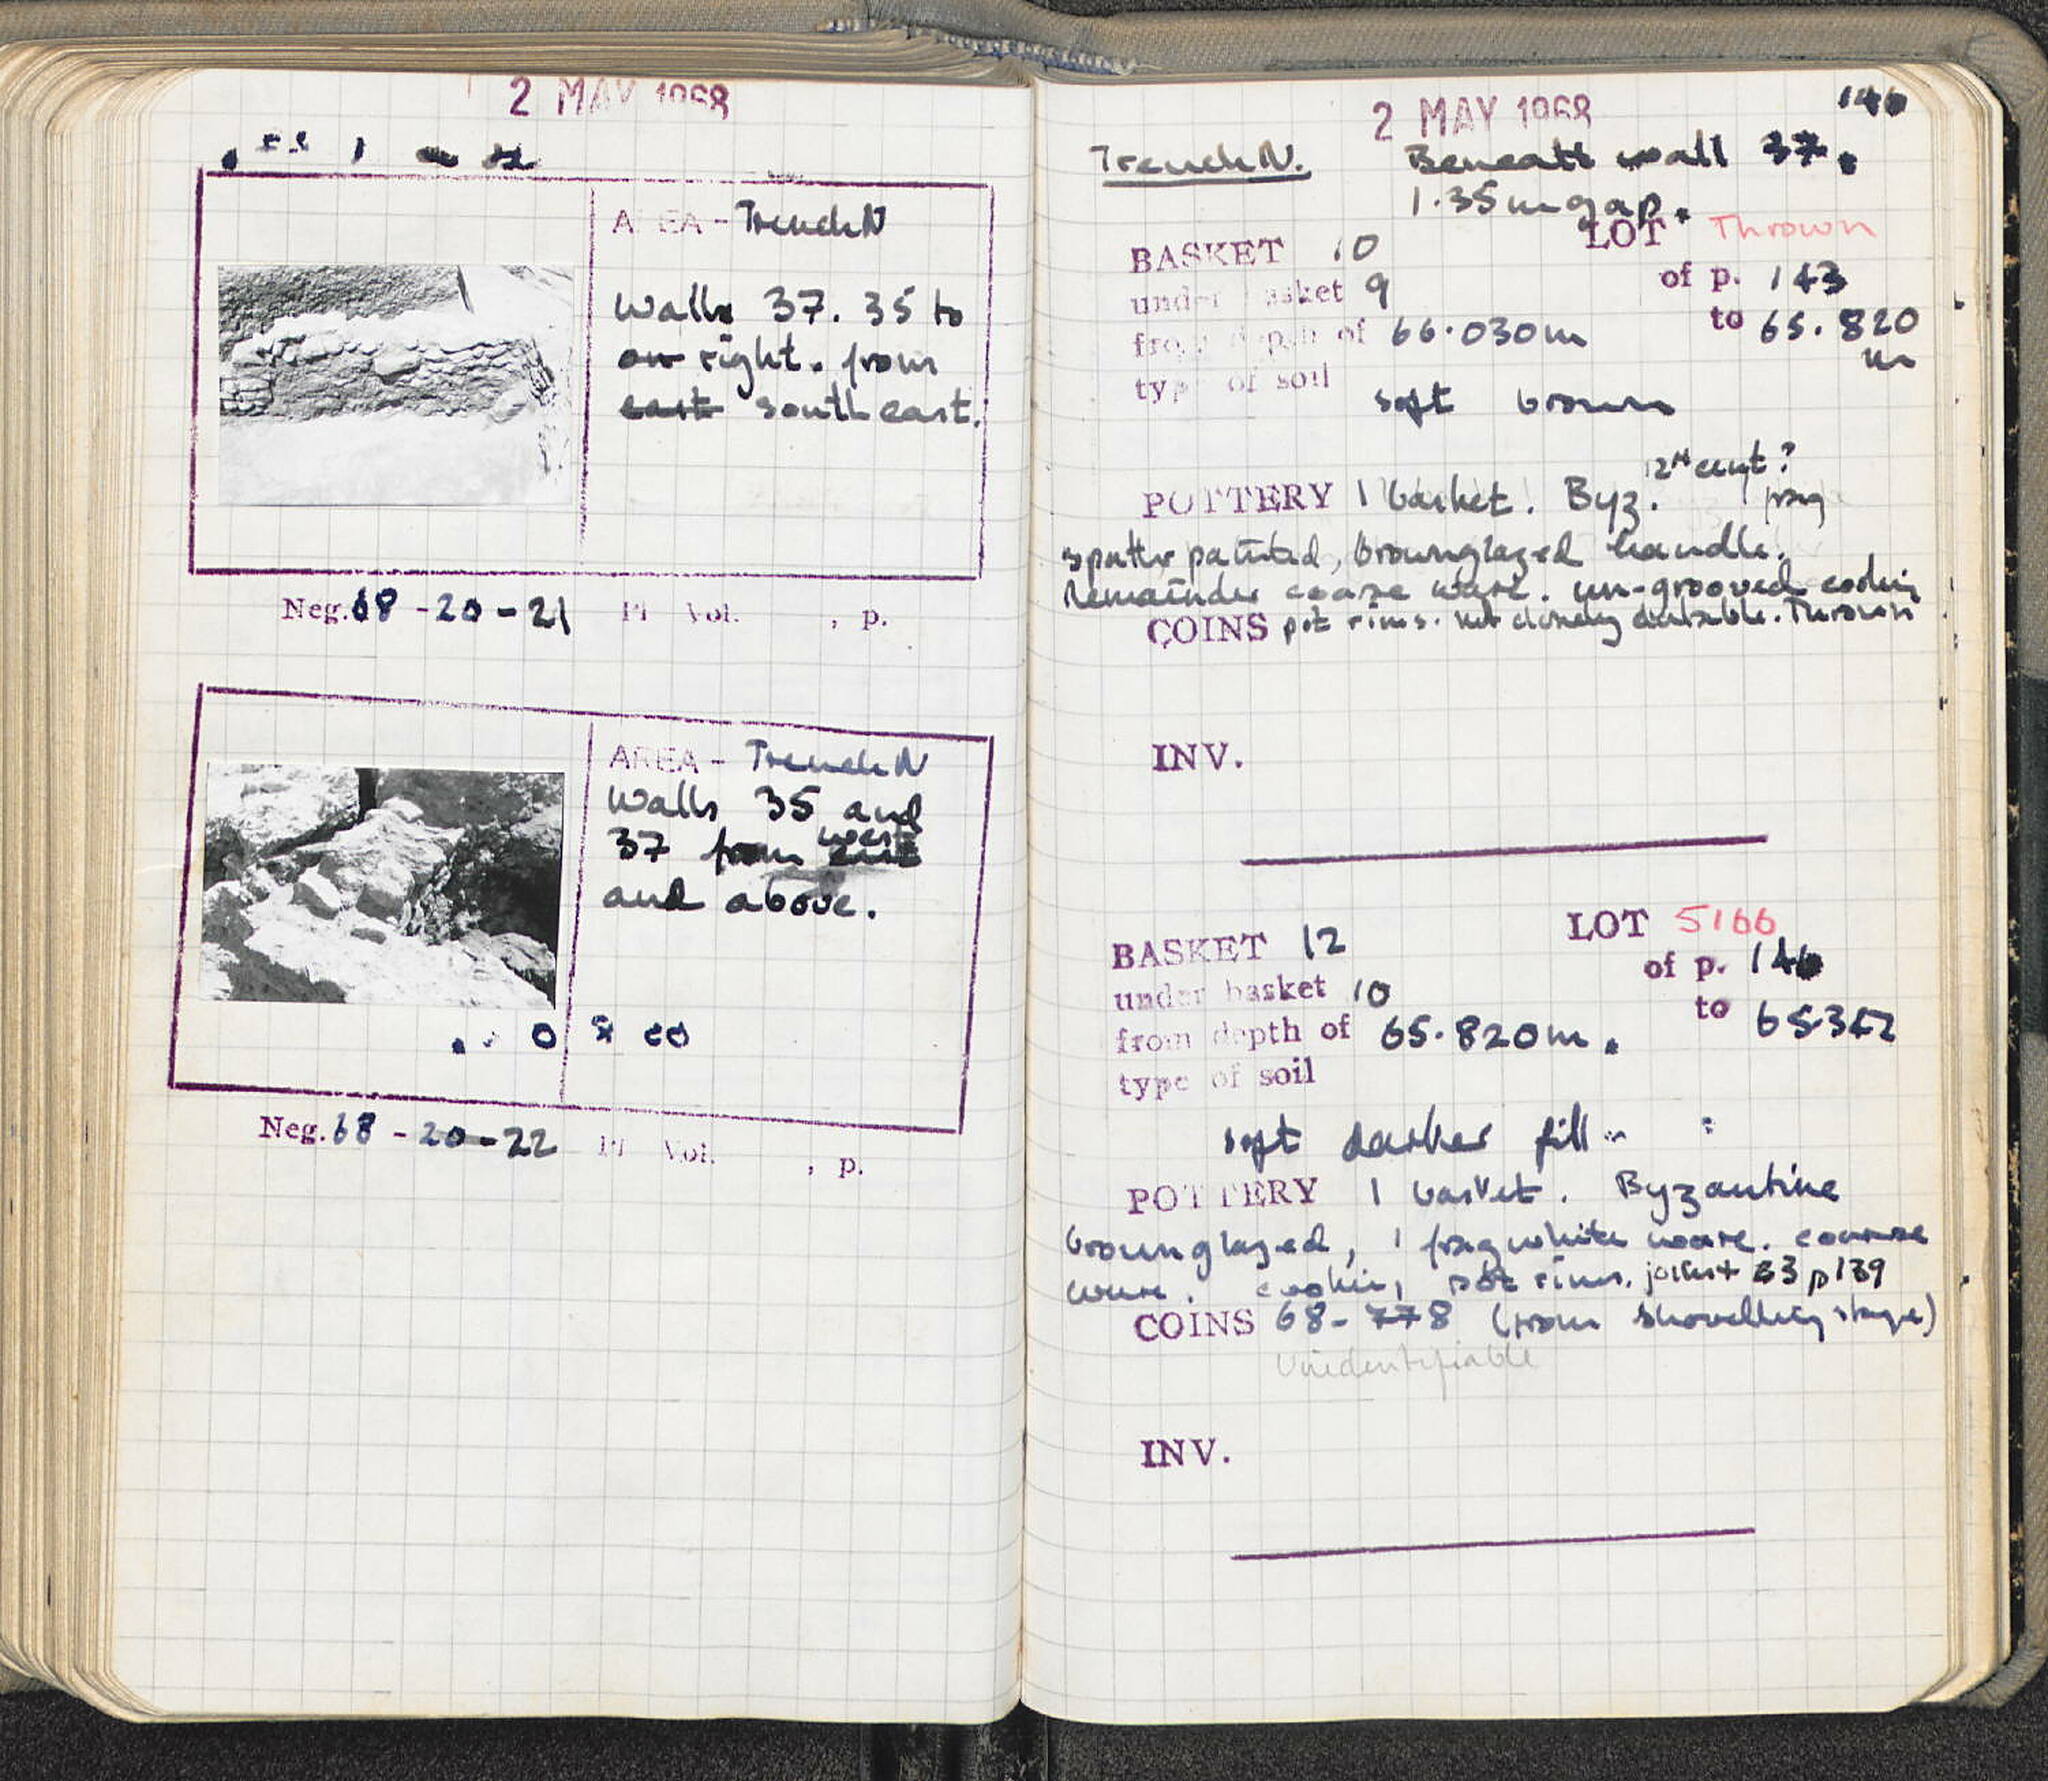 2 MAY 1968
AREA - Trench N
Walls 37. 35 to
on right. from
east southeast.
Neg. 68 - 20 - 21 Pl Vol. , p.
AREA - Trench N
Walls 35 and
37 from west
and above.
Neg. 68 - 20 - 22 Pl Vol. , p.
2 MAY 1968
146
Trench N. Beneath wall 37.
1.35m gap.
BASKET 10 LOT Thrown
under basket 9 of p. 143
from depth of 66.030m to 65.820
m
type of soil
soft brown
12th cent?
POTTERY 1 basket. Byz. frag
spatter painted, brownglazed handle.
Remainder coarse ware. un-grooved cooking
COINS pot rims. not closely datable. Thrown
INV.
BASKET 12 LOT 5166
under basket 10 of p. 146
from depth of 65.820m. to 65.342
type of soil
soft darker fill
POTTERY 1 basket. Byzantine
brownglazed, 1 frag white ware. coarse
ware. cooking pot rims. joins + B3 p139
COINS 68-778 (from shovelling stage)
Unidentifiable
INV.